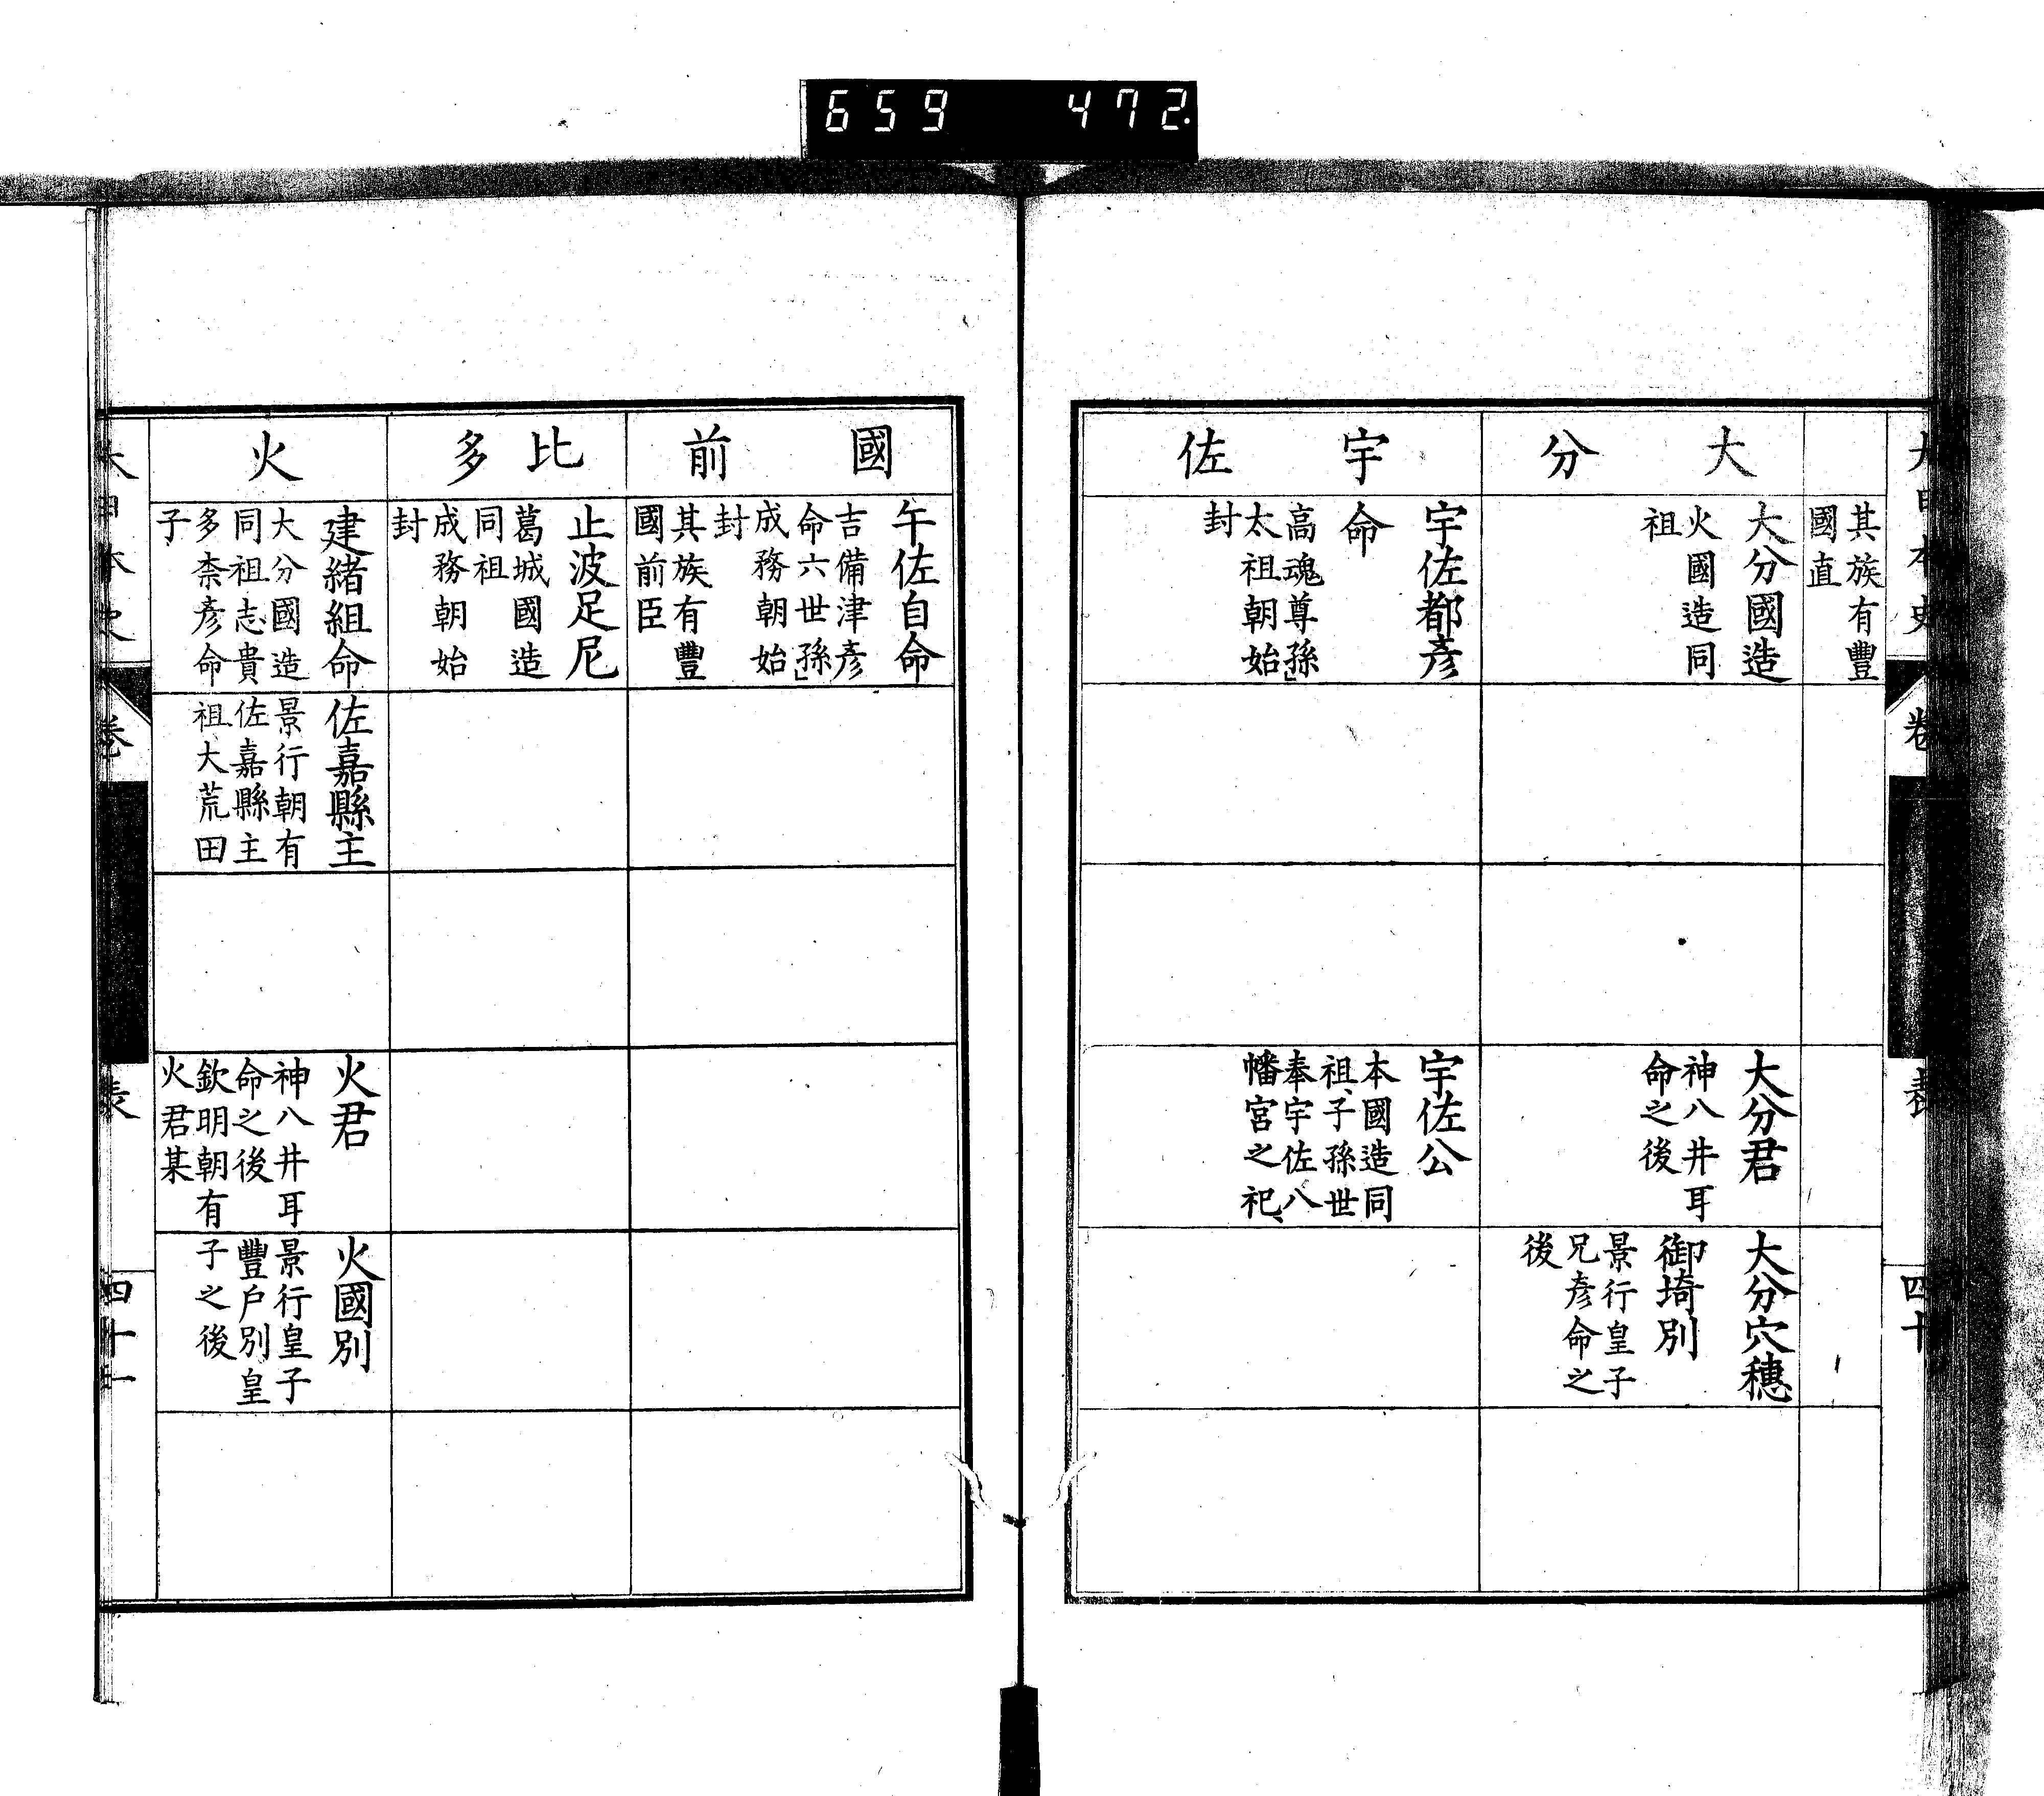 659 472
大日本史
卷
表
四十
其族有豐
國直
大分
大分國造
火國造同
祖
大分君
神八井耳
命之後
大分穴穗
御埼別
景行皇子
兄彥命之
後
宇佐
宇佐都彥
命
高魂尊孫
太祖朝始
封
宇佐公
本國造同
祖、子孫世
奉宇佐八
幡宮之祀、
國前
午佐自命
吉備津彥
命六世孫
成務朝始
封
其族有豐
國前臣
比多
止波足尼
葛城國造
同祖
成務朝始
封
火
建緒組命
大分國造
同祖志貴
多柰彥命
子
佐嘉縣主
景行朝有
佐嘉縣主
祖大荒田
火君
神八井耳
命之後
欽明朝有
火君某
火國別
景行皇子
豐戶別皇
子之後
大日本史
卷
表
四十一